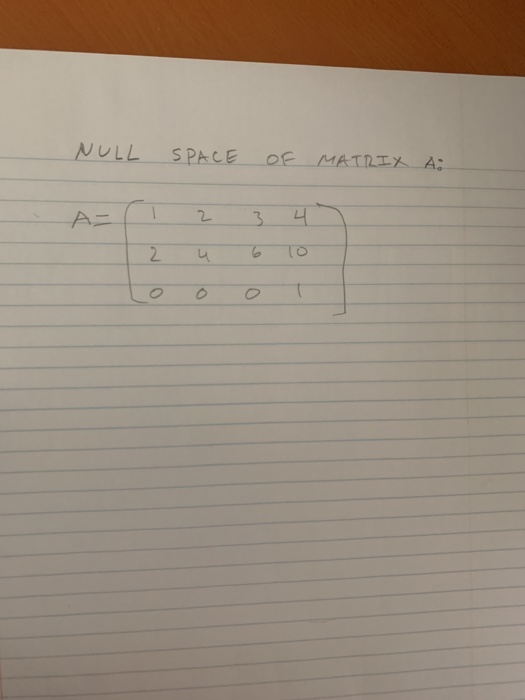 NULL SPACE OF MATRIX A:
A= [ 1 2 3 4
2 4 6 10
0 0 0 1 ]